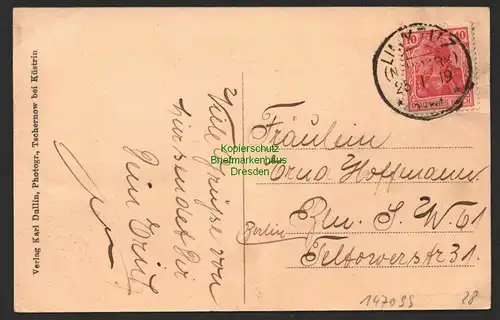 Verlag Karl Dullin, Photogr., Tschernow bei Küstrin
Viele Grüße von
hier sendet Dir
Dein Erich
Fräulein
Erna Hoffmann
Berlin
Bln. S. W. 61
Teltowerstr 31.
10 10
19
Kopierschutz
Briefmarkenhaus
Dresden
147099 28